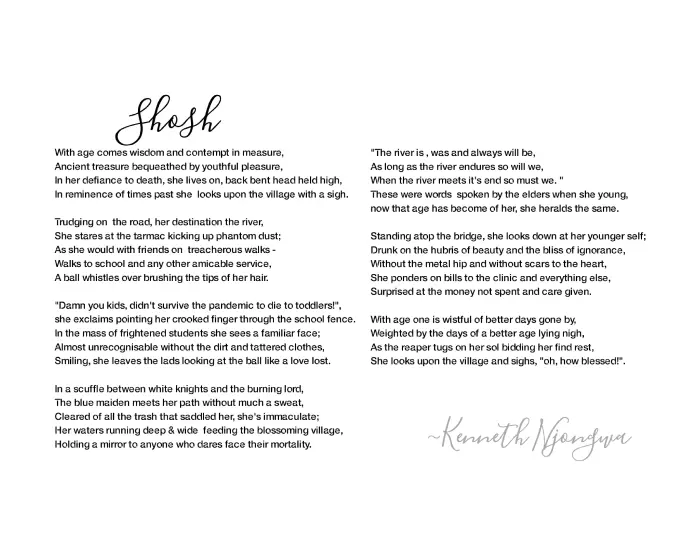 Shosh
With age comes wisdom and contempt in measure,
Ancient treasure bequeathed by youthful pleasure,
In her defiance to death, she lives on, back bent head held high,
In reminence of times past she looks upon the village with a sigh.
Trudging on the road, her destination the river,
She stares at the tarmac kicking up phantom dust;
As she would with friends on treacherous walks -
Walks to school and any other amicable service,
A ball whistles over brushing the tips of her hair.
"Damn you kids, didn't survive the pandemic to die to toddlers!",
she exclaims pointing her crooked finger through the school fence.
In the mass of frightened students she sees a familiar face;
Almost unrecognisable without the dirt and tattered clothes,
Smiling, she leaves the lads looking at the ball like a love lost.
In a scuffle between white knights and the burning lord,
The blue maiden meets her path without much a sweat,
Cleared of all the trash that saddled her, she's immaculate;
Her waters running deep & wide feeding the blossoming village,
Holding a mirror to anyone who dares face their mortality.
"The river is , was and always will be,
As long as the river endures so will we,
When the river meets it's end so must we. "
These were words spoken by the elders when she young,
now that age has become of her, she heralds the same.
Standing atop the bridge, she looks down at her younger self;
Drunk on the hubris of beauty and the bliss of ignorance,
Without the metal hip and without scars to the heart,
She ponders on bills to the clinic and everything else,
Surprised at the money not spent and care given.
With age one is wistful of better days gone by,
Weighted by the days of a better age lying nigh,
As the reaper tugs on her sol bidding her find rest,
She looks upon the village and sighs, "oh, how blessed!".
~Kenneth Njongwa